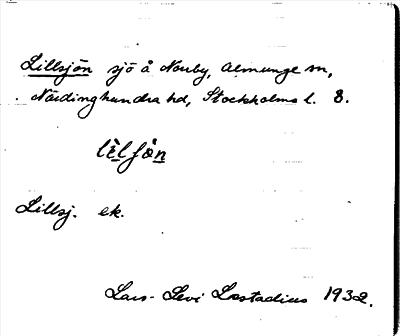 Lillsjön sjö å Norrby, Almunge sn,
Närdinghundra hd, Stockholms l. 8.
Lillsj. ek.
Lars-Levi Læstadius 1932.